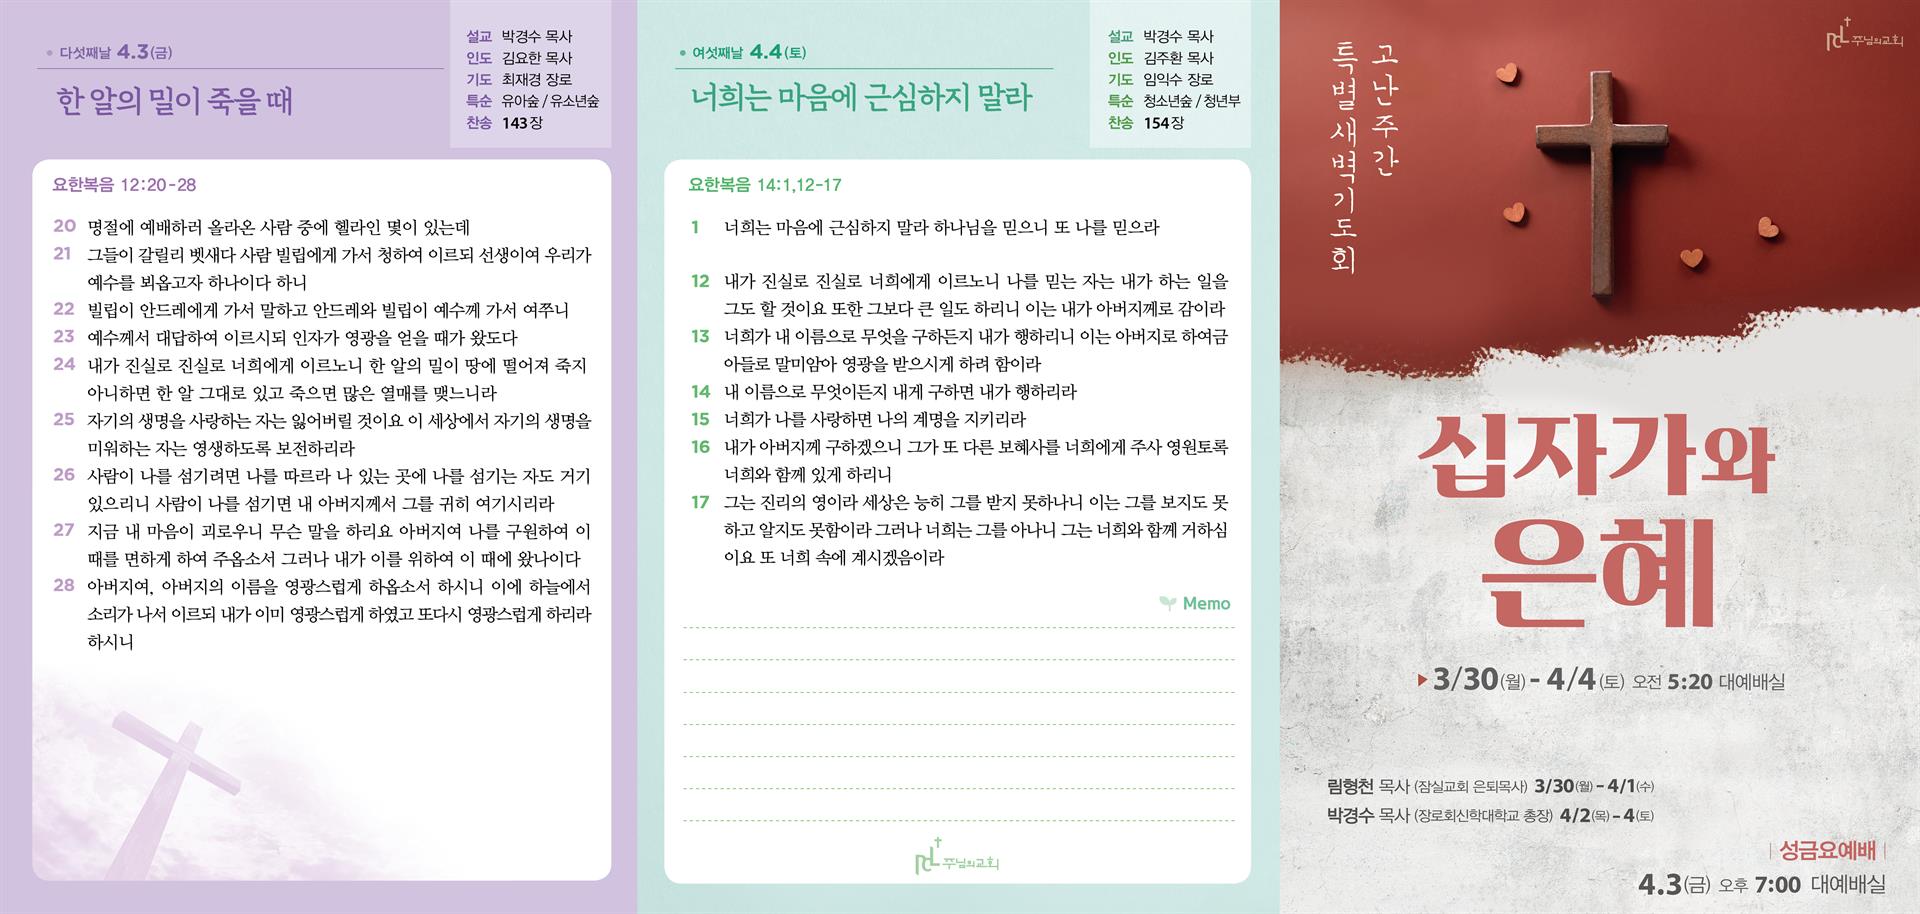 다섯째날 4.3(금)
한 알의 밀이 죽을 때
설교 박경수 목사
인도 김요한 목사
기도 최재경 장로
특순 유아숲 / 유소년숲
찬송 143장
요한복음 12:20-28
20 명절에 예배하러 올라온 사람 중에 헬라인 몇이 있는데
21 그들이 갈릴리 벳새다 사람 빌립에게 가서 청하여 이르되 선생이여 우리가
예수를 뵈옵고자 하나이다 하니
22 빌립이 안드레에게 가서 말하고 안드레와 빌립이 예수께 가서 여쭈니
23 예수께서 대답하여 이르시되 인자가 영광을 얻을 때가 왔도다
24 내가 진실로 진실로 너희에게 이르노니 한 알의 밀이 땅에 떨어져 죽지
아니하면 한 알 그대로 있고 죽으면 많은 열매를 맺느니라
25 자기의 생명을 사랑하는 자는 잃어버릴 것이요 이 세상에서 자기의 생명을
미워하는 자는 영생하도록 보전하리라
26 사람이 나를 섬기려면 나를 따르라 나 있는 곳에 나를 섬기는 자도 거기
있으리니 사람이 나를 섬기면 내 아버지께서 그를 귀히 여기시리라
27 지금 내 마음이 괴로우니 무슨 말을 하리요 아버지여 나를 구원하여 이
때를 면하게 하여 주옵소서 그러나 내가 이를 위하여 이 때에 왔나이다
28 아버지여, 아버지의 이름을 영광스럽게 하옵소서 하시니 이에 하늘에서
소리가 나서 이르되 내가 이미 영광스럽게 하였고 또다시 영광스럽게 하리라
하시니
여섯째날 4.4(토)
너희는 마음에 근심하지 말라
설교 박경수 목사
인도 김주환 목사
기도 임익수 장로
특순 청소년숲 / 청년부
찬송 154장
요한복음 14:1,12-17
1 너희는 마음에 근심하지 말라 하나님을 믿으니 또 나를 믿으라
12 내가 진실로 진실로 너희에게 이르노니 나를 믿는 자는 내가 하는 일을
그도 할 것이요 또한 그보다 큰 일도 하리니 이는 내가 아버지께로 감이라
13 너희가 내 이름으로 무엇을 구하든지 내가 행하리니 이는 아버지로 하여금
아들로 말미암아 영광을 받으시게 하려 함이라
14 내 이름으로 무엇이든지 내게 구하면 내가 행하리라
15 너희가 나를 사랑하면 나의 계명을 지키리라
16 내가 아버지께 구하겠으니 그가 또 다른 보혜사를 너희에게 주사 영원토록
너희와 함께 있게 하리니
17 그는 진리의 영이라 세상은 능히 그를 받지 못하나니 이는 그를 보지도 못
하고 알지도 못함이라 그러나 너희는 그를 아나니 그는 너희와 함께 거하심
이요 또 너희 속에 계시겠음이라
Memo
PCL 주님의교회
PCL 주님의교회
고난주간
특별새벽기도회
십자가와
은혜
3/30(월) - 4/4(토) 오전 5:20 대예배실
림형천 목사 (잠실교회 은퇴목사) 3/30(월) - 4/1(수)
박경수 목사 (장로회신학대학교 총장) 4/2(목) - 4(토)
| 성금요예배 |
4.3(금) 오후 7:00 대예배실